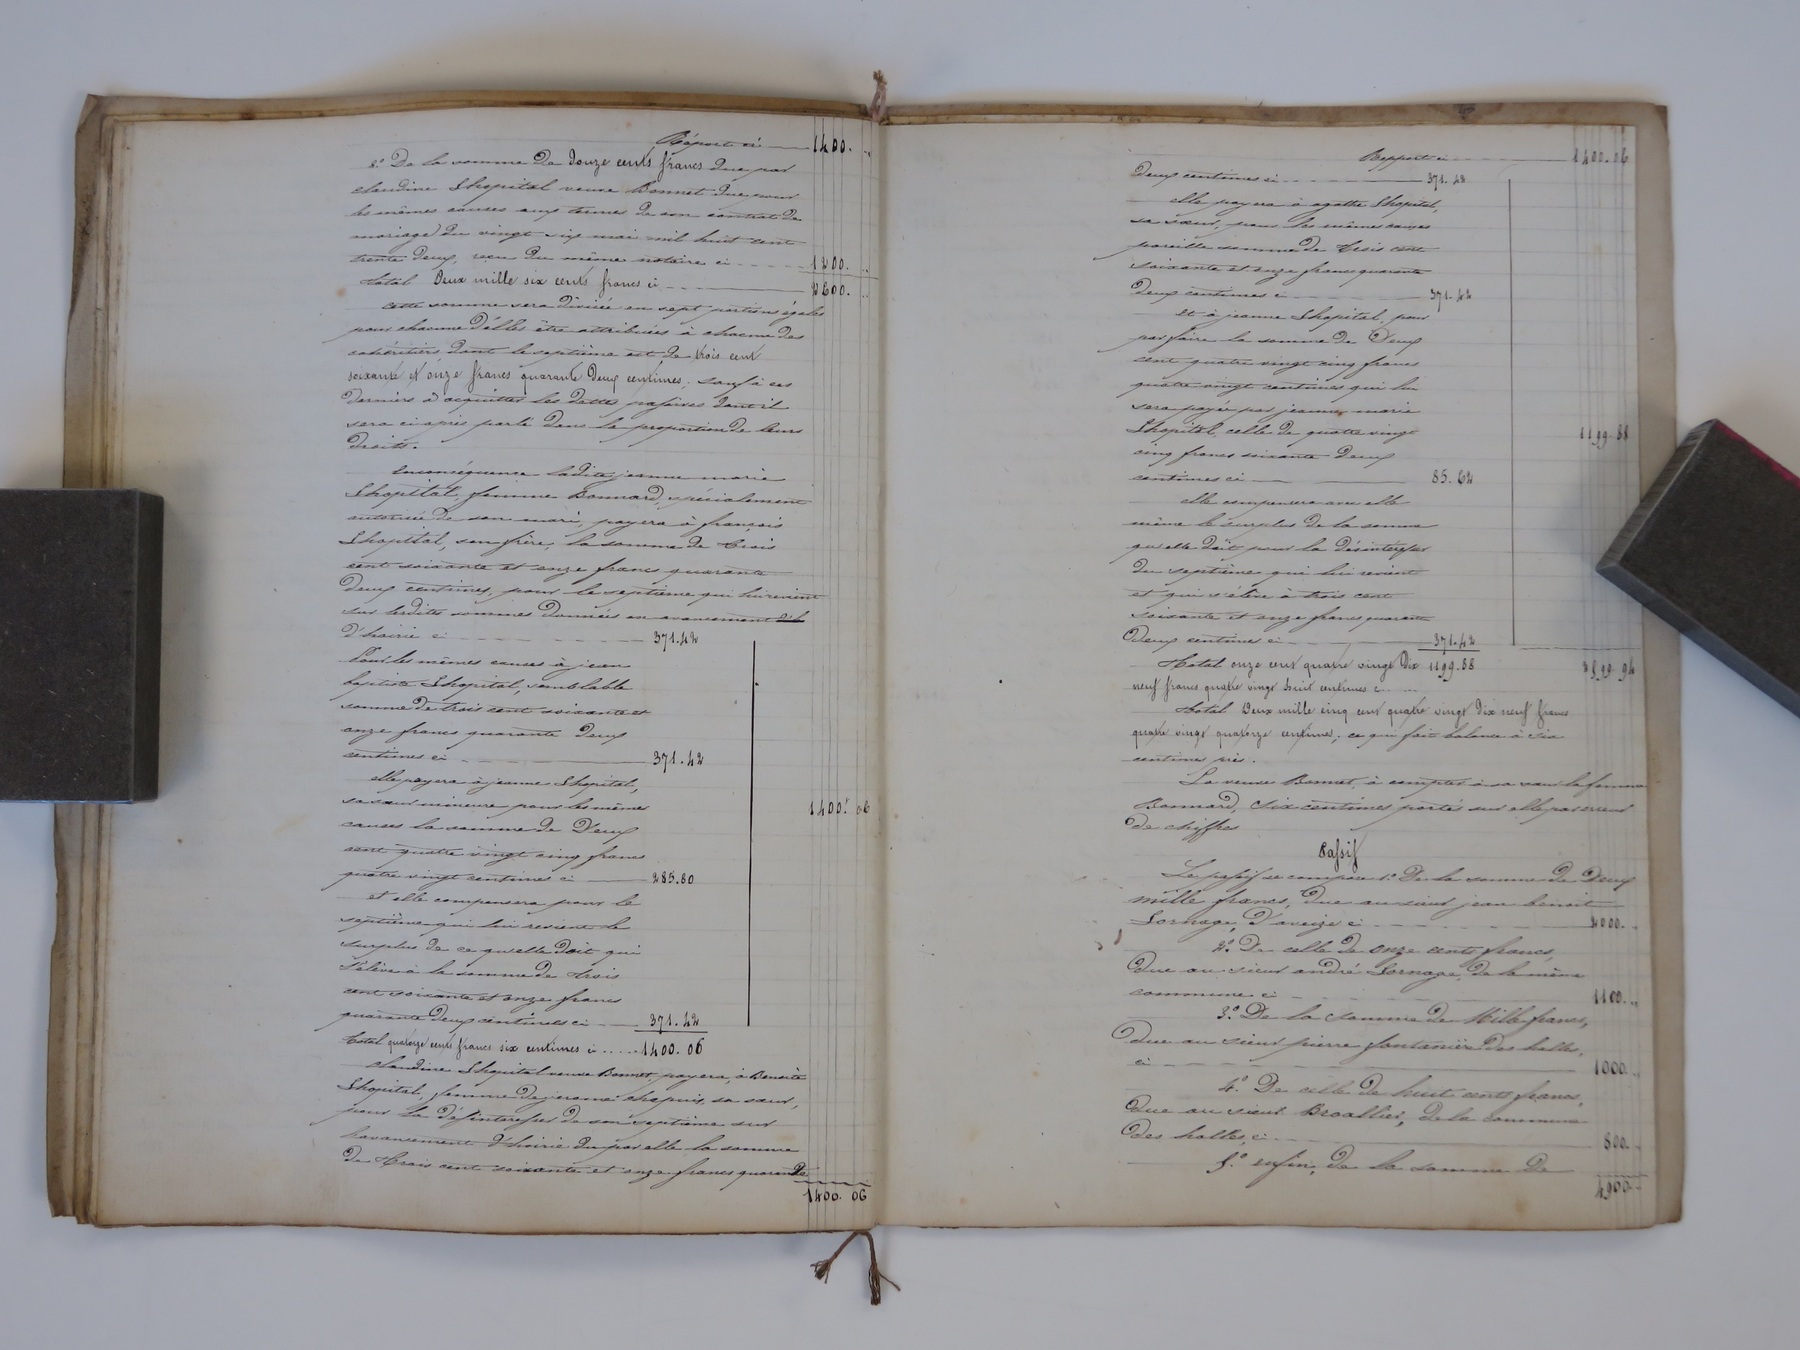 Réport ci 1400.
2.° De la somme de douze cents francs due par
claudine Shopital veuve Bonnet due pour
les mêmes causes aux termes de son contrat de
mariage du vingt six mai mil huit cent
trente deux, reçu du même notaire ci 1200.
total Deux mille six cents francs ci 2600.
cette somme sera divisée en sept portions égales
pour chacune d'élles être attribuées à chacun des
cohéritiers, dont le septième est de trois cent
soixante et onze francs quarante deux centimes, sauf à ces
derniers à acquitter les dettes passives dont il
sera ci après parlé dans la proportion de leurs
droits.
Enconséquence ladite jeanne marie
Shopital, femme Bonnard, spécialement
autorisée de son mari, payera à françois
Shopital, son frère, la somme de trois
cent soixante et onze francs quarante
deux centimes, pour le septième qui lui revient
sur lesdites sommes données en avancement
d'hoirie ci 371.42
Pour les mêmes causes à jean
baptiste Shopital, semblable
somme de trois cent soixante et
onze francs quarante deux
centimes ci 371.42
elle payera à jeanne Shopital,
sa sœur mineure pour les mêmes
causes la somme de Deux 1400. 06
cent quatre vingt cinq francs
quatre vingt centimes ci 285.80
et elle compensera pour le
septième qui lui revient le
surplus de ce qu'elle doit qui
s'élève à la somme de trois
cent soixante et onze francs
quarante deux centimes ci 371.42
total quatorze cents francs six centimes ci 1400.06
claudine Shopital veuve Bonnet payera, à Benoite
Shopital, femme de jerome chapuis, sa sœur,
pour la désinteresser de son septième sur
l'avancement d'hoirie du par elle la somme
de trois cent soixante et onze francs quarante
1400. 06
Rapport ci 1400.06
deux centimes ci 371.42
elle payera à agathe Shopital,
sa sœur, pour les mêmes causes
pareille somme de trois cent
soixante et onze francs quarante
deux centimes ci 371.42
Et à jeanne Shopital, pour
parfaire la somme de Deux
cent quatre vingt cinq francs
quatre vingt centimes qui lui
sera payée par jeanne marie
Shopital, celle de quatre vingt 1199.88
cinq francs soixante deux
centimes ci 85.62
elle compensera avec elle
même le surplus de la somme
qu'elle doit pour la désinteresser
du septième qui lui revient
et qui s'élève à trois cent
soixante et onze francs quarante
deux centimes ci 371.42
Total onze cent quatre vingt dix 1199.88 2599.94
neuf francs quatre vingt huit centimes ci
total Deux mille cinq cent quatre vingt dix neuf francs
quatre vingt quatorze centimes; ce qui fait balance à six
centimes près.
La veuve Bonnet, à compter à sa sœur la femme
Bonnard, six centimes portés sur elle par erreur
de chiffres
Passif
Le passif se compose 1.° De la somme de Deux
mille francs, due au sieur jean benoit
Sornage, d'aveize ci 2000.
2.° De celle de onze cents francs,
due au sieur andré Sornage, de la même
commune ci 1100.
3.° De la somme de Mille francs,
due au sieur pierre fontanière des halles,
ci 1000.
4.° De celle de huit cents francs,
due au sieur Broallier, de la commune
des halles, ci 800.
5.° enfin, de la somme de
4900